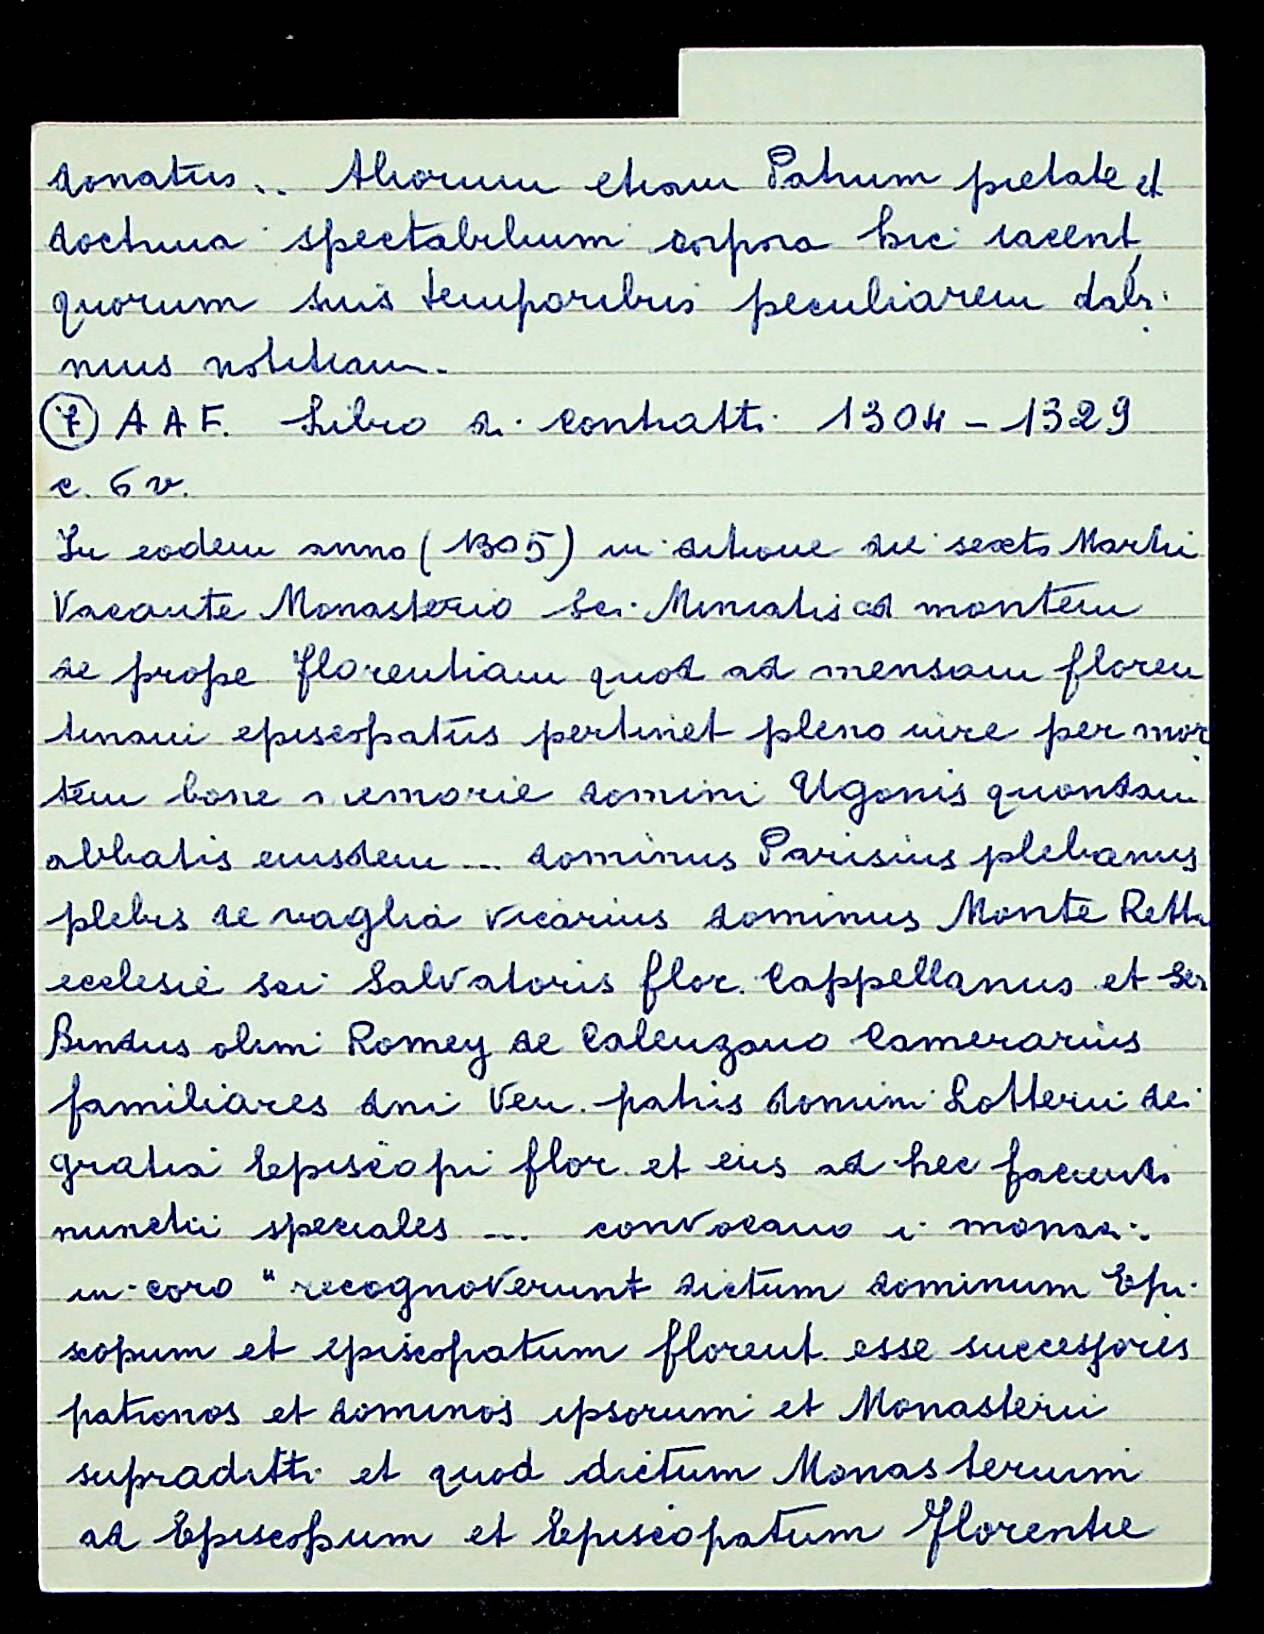 donatus.. Aliorum etiam Patrum pietate et
doctrina spectabilium corpora hic iacent,
quorum suis temporibus peculiarem dabi-
mus notitiam.
(7) A A F. Libro di contratti 1304 - 1329
c. 6 v.
In eodem anno (1305) indictione die sexto Martii
Vacante Monasterio Sci. Miniatis ad montem
de prope florentiam quod ad mensam floren
tinam episcopatus pertinet pleno iure per mor
tem bone memorie domini Ugonis quondam
abbatis eiusdem ... dominus Parisius plebanus
plebis de vaglia vicarius dominus Monte Rett.
ecclesie sci Salvatoris flor. Cappellanus et Ser
Bindus olim Romey de Calenzano Camerarius
familiares dni Ven. patris domini Lotterii dei
gratia Episcopi flor. et eius ad hec facienda
nunctii speciales ... convocano i monaci
in coro "recognoverunt dictum dominum Epi-
scopum et episcopatum florent. esse successores
patronos et dominos ipsorum et Monasterii
supraditti et quod dictum Monasterium
ad Episcopum et Episcopatum Florentie